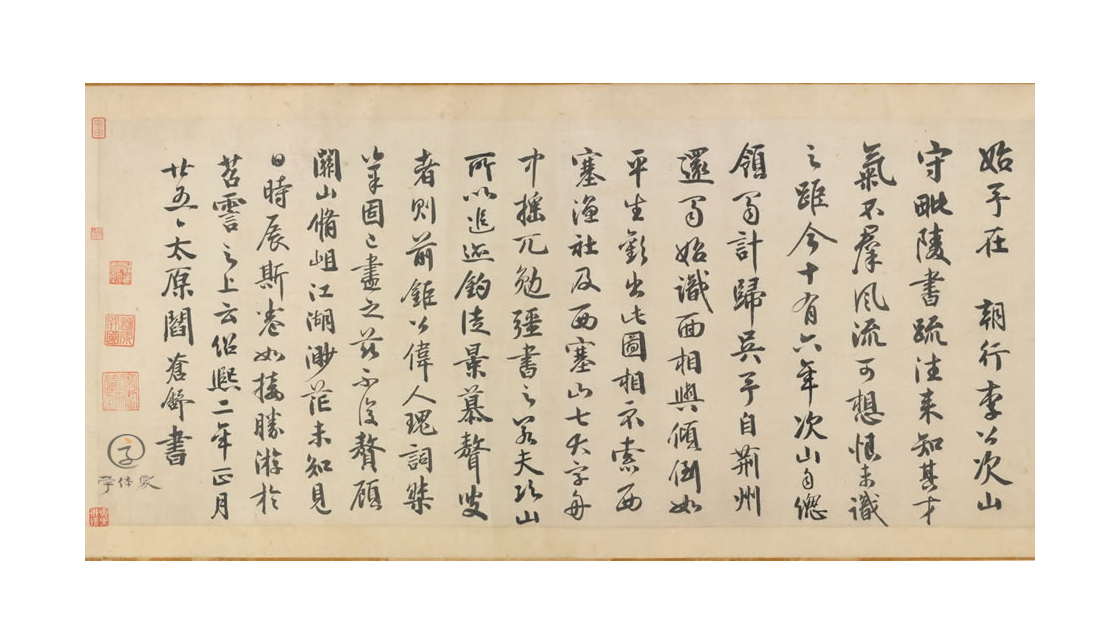 始予在 朝行李公次山
守毗陵書疏往来知其才
氣不羣風流可想恨未識
之距今十有六年次山自總
領蜀計歸吳予自荆州
還蜀始識面相與傾倒如
平生歡出此圖相示索西
塞漁社及西塞山七大字舟
中搖兀勉彊書之若夫玩山
所以進遊釣徒景慕聱叟
者則前鉅公偉人瑰詞傑
筆固已盡之茲不復贅顧
關山脩岨江湖渺茫未知見
日時展斯卷如接勝游於
苕霅之上云紹熙二年正月
廿五日太原閻蒼舒書
字体家